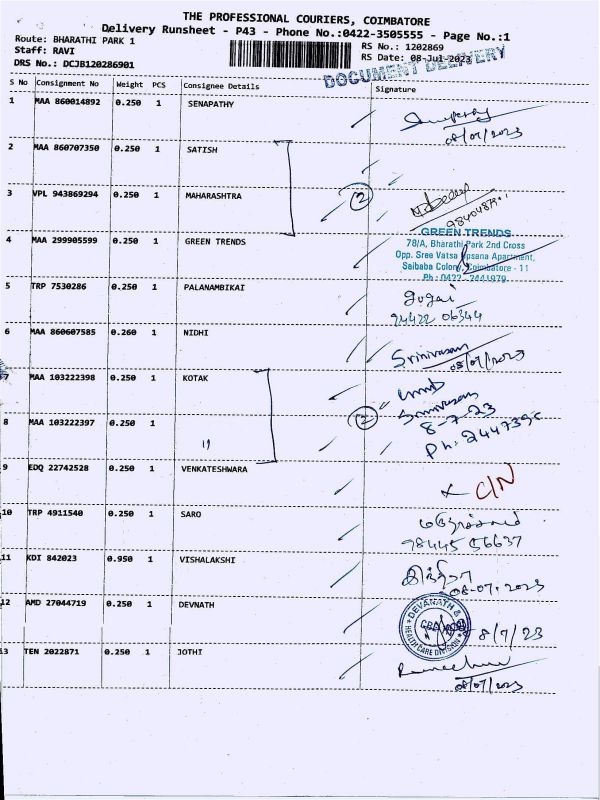 THE PROFESSIONAL COURIERS, COIMBATORE
Delivery Runsheet - P43 - Phone No.:0422-3505555 - Page No.:1
Route: BHARATHI PARK 1
Staff: RAVI
DRS No.: DCJB120286901
RS No.: 1202869
RS Date: 08-Jul-2023
DOCUMENT DELIVERY
S No Consignment No Weight PCS Consignee Details Signature
1 MAA 860014892 0.250 1 SENAPATHY
08/07/2023
2 MAA 860707350 0.250 1 SATISH
3 VPL 943869294 0.250 1 MAHARASHTRA 2
4 MAA 299905599 0.250 1 GREEN TRENDS
GREEN TRENDS
78/A, Bharathi Park 2nd Cross
Opp. Sree Vatsa Upsana Apartment,
Saibaba Colony, Coimbatore - 11
Ph : 0422 - 2441979
5 TRP 7530286 0.250 1 PALANAMBIKAI
94422 06344
6 MAA 860607585 0.260 1 NIDHI
Srinivasan
08/07/2023
7 MAA 103222398 0.250 1 KOTAK
8 MAA 103222397 0.250 1 " 2
Srinivasan
8-7-23
9 EDQ 22742528 0.250 1 VENKATESHWARA
C/N
10 TRP 4911540 0.250 1 SARO
98445 56637
11 KDI 842023 0.950 1 VISHALAKSHI
08-07-2023
12 AMD 27044719 0.250 1 DEVNATH
DEVANATH &
HEALTH CARE DIVISION
8/7/23
13 TEN 2022871 0.250 1 JOTHI
08/07/2023